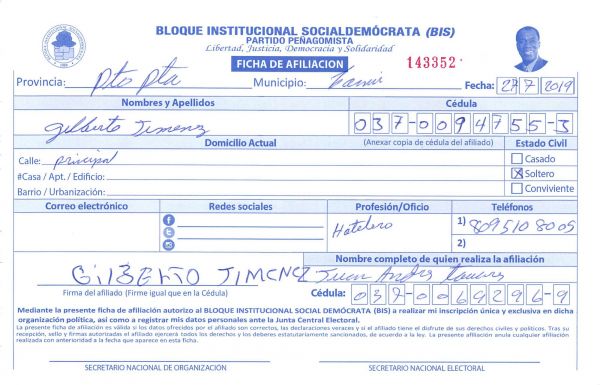 BLOQUE INSTITUCIONAL SOCIALDEMÓCRATA (BIS)
PARTIDO PEÑAGOMISTA
Libertad, Justicia, Democracia y Solidaridad
FICHA DE AFILIACION 143352
Provincia: Pto pta Municipio: Fecha: 27 7 2019
Nombres y Apellidos Cédula
Gilberto Jimenez 037-0094755-3
Domicilio Actual (Anexar copia de cédula del afiliado) Estado Civil
Calle: principal Casado
#Casa / Apt. / Edificio: Soltero
Barrio / Urbanización: Conviviente
Correo electrónico Redes sociales Profesión/Oficio Teléfonos
Hotelero 1) 809 510 8005
2)
Nombre completo de quien realiza la afiliación
GILBERTO JIMENEZ Juan Andre
Firma del afiliado (Firme igual que en la Cédula) Cédula: 037-0069296-9
Mediante la presente ficha de afiliación autorizo al BLOQUE INSTITUCIONAL SOCIAL DEMÓCRATA (BIS) a realizar mi inscripción única y exclusiva en dicha
organización política, así como a registrar mis datos personales ante la Junta Central Electoral.
La presente ficha de afiliación es válida si los datos ofrecidos por el afiliado son correctos, las declaraciones veraces y si el afiliado tiene el disfrute de sus derechos civiles y políticos. Tras su
recepción, sello y firmas autorizadas el afiliado ejercerá todos los derechos y los deberes estatutariamente sancionados, de acuerdo a la ley. La presente afiliación anula cualquier afiliación
realizada con anterioridad a la fecha que aparece en esta ficha.
SECRETARIO NACIONAL DE ORGANIZACIÓN SECRETARIO NACIONAL ELECTORAL